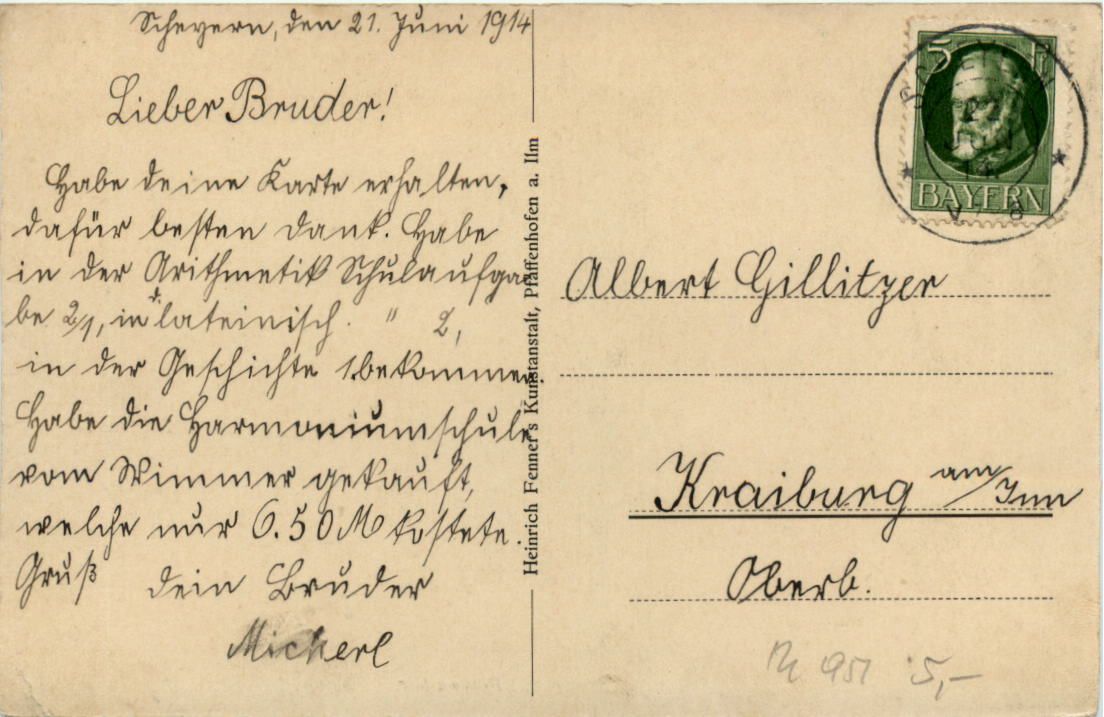 Scheyern, den 21. Juni 1914
Lieber Bruder!
Habe deine Karte erhalten,
dafür besten Dank. Habe
in der Arithmetik Schulaufga
be 2/1, in lateinisch. " 2,
in der Geschichte 1 bekommen.
Habe die Harmoniumschule
vom Wimmer gekauft,
welche nur 6.50 M kostete.
Gruß dein Bruder
Micherl
Heinrich Fenner's Kunstanstalt, Pfaffenhofen a. Ilm
5
BAYERN
22
JUN
14
V. 8
Albert Gillitzer
Kraiburg am/Inn
Oberb.
951 5,-